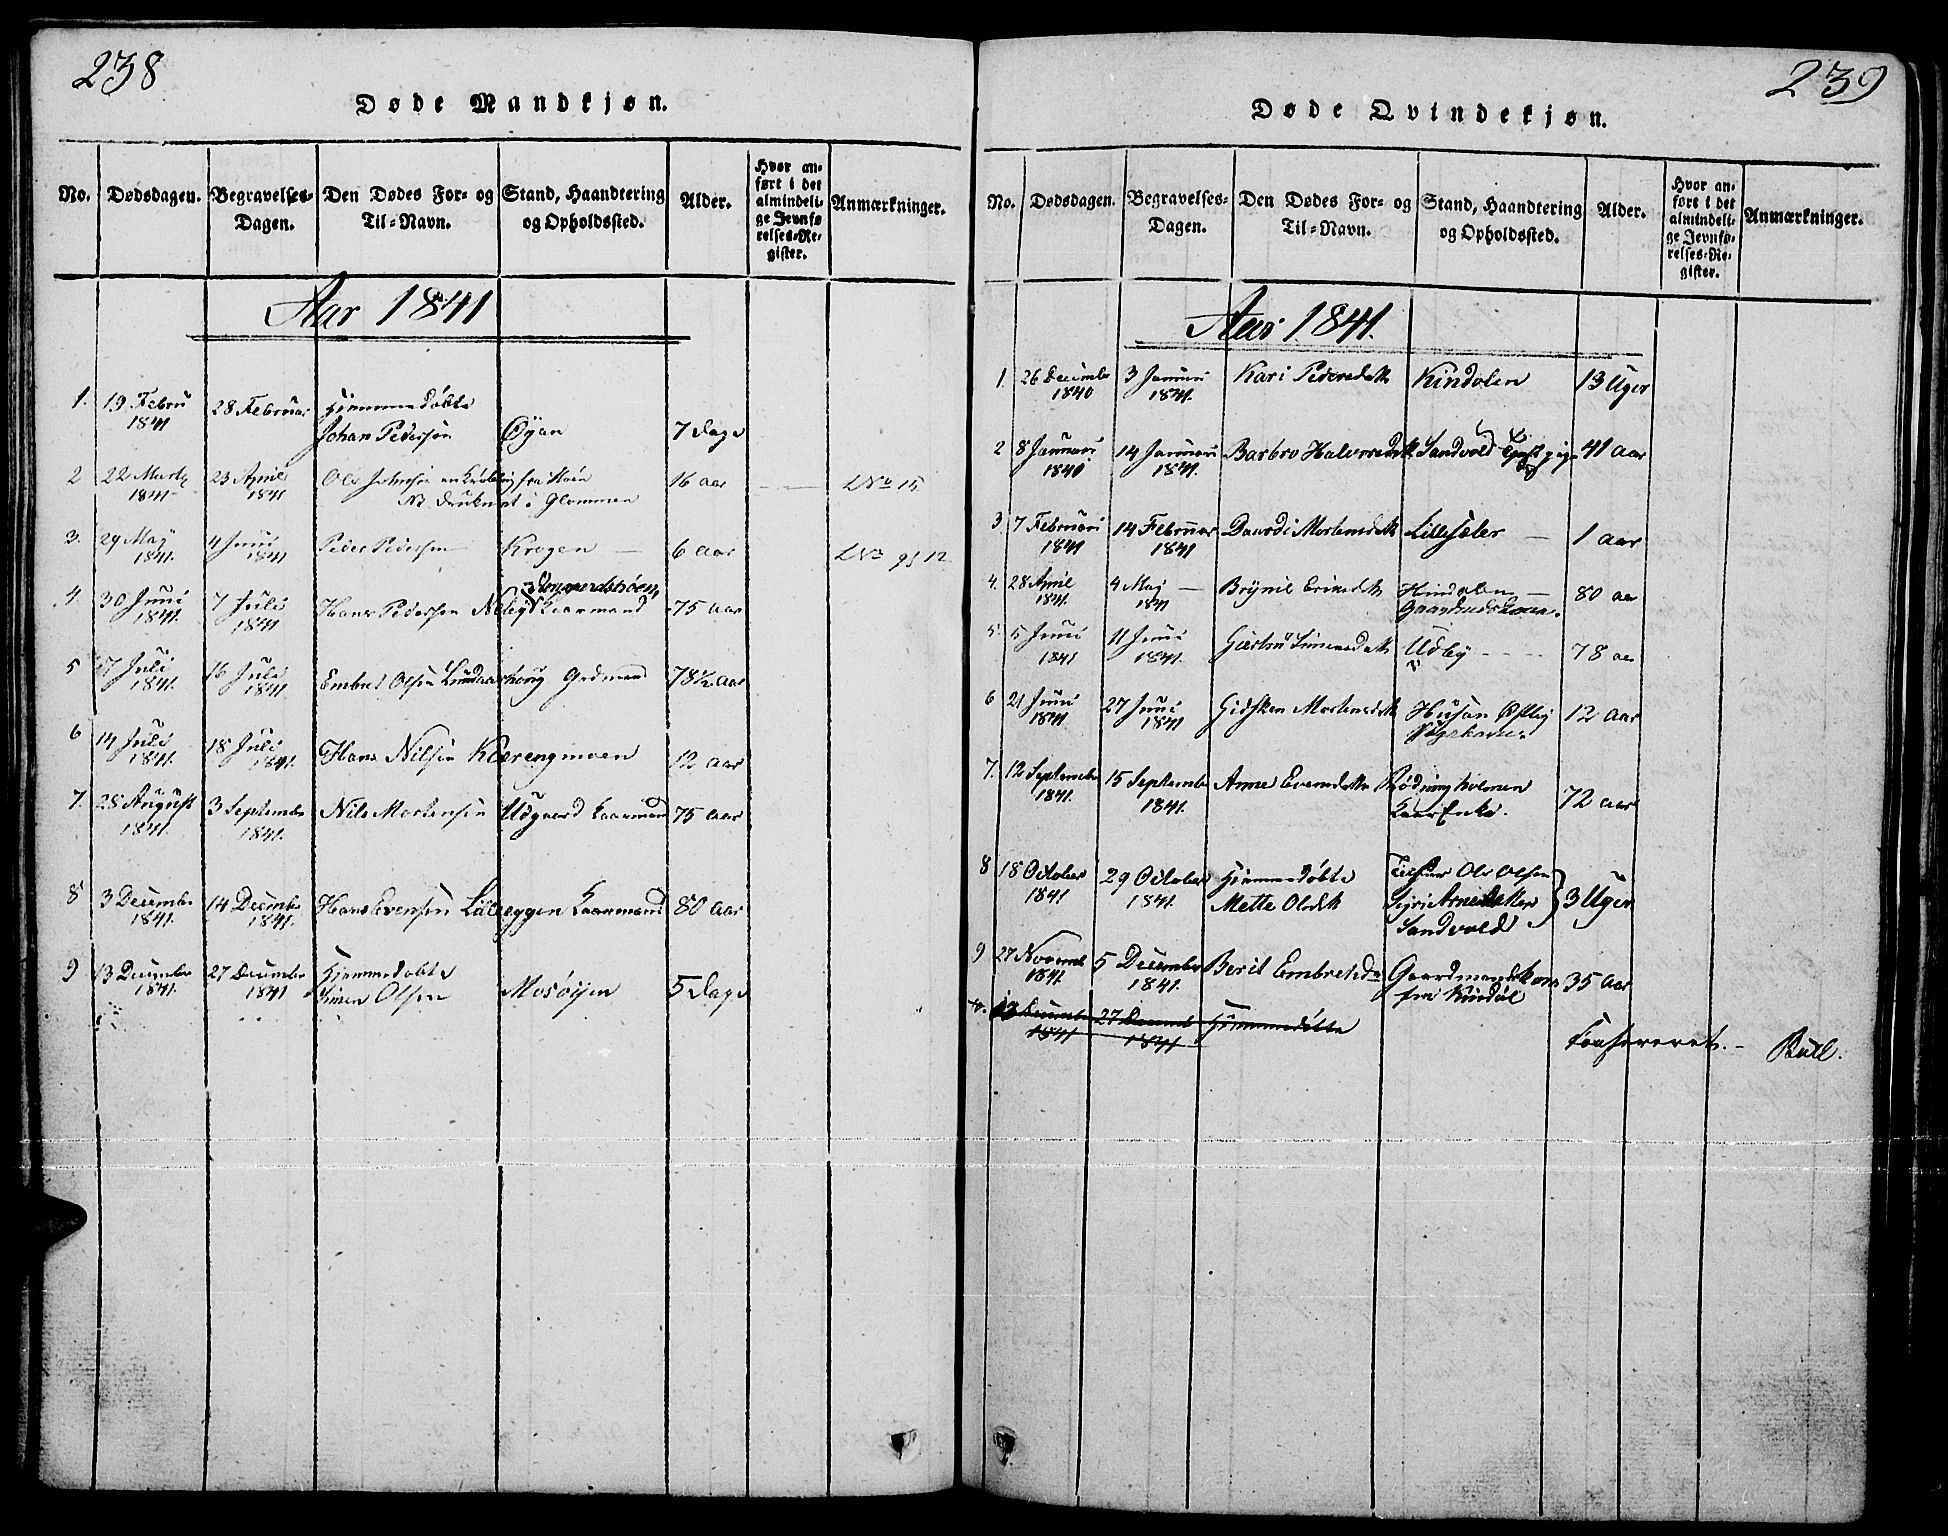 238
Døde Mandkjøn.
No. Dødsdagen. Begravelses-Dagen. Den Dødes For- og Til-Navn. Stand, Haandtering og Opholdssted. Alder. Hvor anført i det almindelige Jevnførelses-Register. Anmærkninger.
Aar 1841
1. 19 Febru 1841 28 Februar Hjemmedøbte Johan Pedersen Øyan 7 Dage
2 22 Marts 1841 23 April 1841 Ole Johnsen en fra NB druknet i Glommen 16 aar No 15
3. 29 May 1841. 4 Juni 1841 Peder Pedersen Krogen 6 aar No
4. 30 Juni 1841. 7 Juli 1841 Hans Pedersen Nebye Kaarmand 75 aar
5 7 Juli 1841. 16 Juli 1841 Embret Olsen Lundaashoug Grdmand 78 1/2 aar
6 14 Juli 1841. 18 Juli 1841. Hans Nilsen Kværengmoen 12 aar
7. 28 August 1841. 3 Septembr 1841. Nils Mortensen Udgaard Kaarmand 75 aar
8 3 Decembr 1841. 14 Decembr 1841. Hans Evensen Lilleeggen Kaarmand 80 aar
9 13 Decembr 1841. 27 Decembr 1841 Hjemmedøbte Simen Olsen Mosøyen 5 Dage
239
Døde Qvindekjøn.
No. Dødsdagen. Begravelses-Dagen. Den Dødes For- og Til-Navn. Stand, Haandtering og Opholdssted. Alder. Hvor anført i det almindelige Jevnførelses-Register. Anmærkninger.
Aar 1841.
1. 26 Decembr 1840 3 Januari 1841. Kari Pedersdatt Kindølen 13 Uger
2 8 Januari 1841 14 Januari 1841. Barbro Halvorsdatt Sandvold 41 aar
3 7 Februari 1841 14 Februar 1841 Daardi Mortensdatt Lilleseler 1 aar
4. 28 April 1841. 4 May 1841 Brynil Eriksdatt Gaardmandskone. 80 aar
5 5 Juni 1841 11 Juni 1841. Giertru Simensdatt Udby 78 aar
6 21 Juni 1841 27 Juni 1841 Gidsken Mortensdatt Husan Østby 12 aar
7. 12 Septembr 1841. 15 Septembr 1841. Anne Evensdatter Rødningholmen KaarEnke. 72 aar
8 18 October 1841 29 October 1841. Hjemmedøbte Mette Olsdtt Ole Olsen Sigri Arnesdatter Sandvold 3 Uger
9 27 Novemb 1841. 5 Decembr 1841. Berit Embretsd Gaardmandskone fra Kindøl 35 aar
13 Decembr 1841 27 Decemb 1841 Hjemmedøbte
Confereret. Bull.